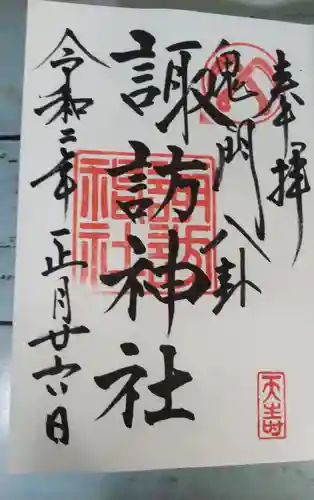 奉拝
鬼門八卦
諏訪神社
令和二年正月廿六日
諏訪神社